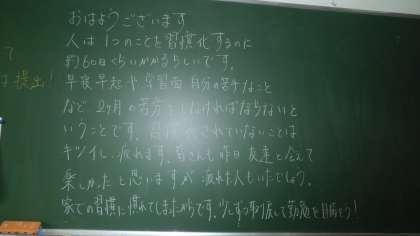 おはようございます
人は1つのことを習慣化するのに
約60日くらいかかるらしいです。
早寝早起や学習面 自分の苦手なこと
など 2ヶ月の苦労をしなければならないと
いうことです。習慣化されていないことは
キツイし、疲れます。皆さんも昨日 友達と会えて
楽しかったと思いますが 疲れた人もいたでしょう。
家での習慣に慣れてしまったからです。少しずつ取り戻して勤勉を目指そう!
て
は提出!